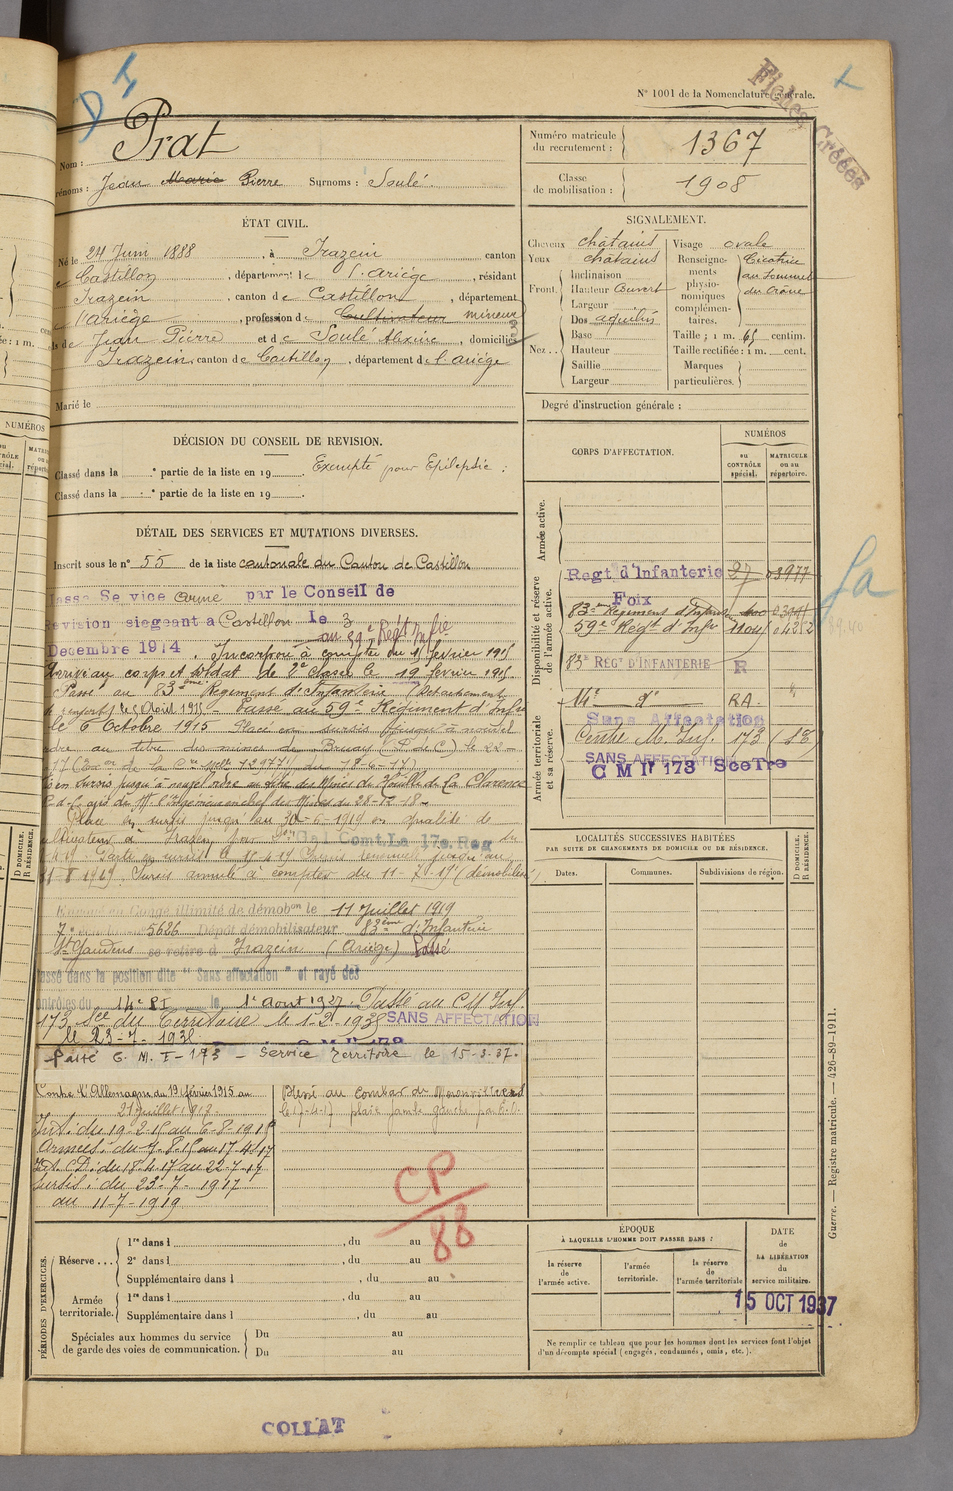 D I
N° 1001 de la Nomenclature générale.
Fiches Créées
Nom : Prat
Prénoms : Jean Marie Pierre Surnoms : Soulé.
Numéro matricule du recrutement : 1367
Classe de mobilisation : 1908
ÉTAT CIVIL.
Né le 24 Juin 1888, à Irazein canton
Castillon, département de l'Ariège, résidant
Irazein, canton de Castillon, département
l'Ariège, profession de Cultivateur mineur
fils de Jean Pierre et de Soulé Alexine, domiciliés
Irazein, canton de Castillon, département de l'Ariège
Marié le
SIGNALEMENT.
Cheveux châtains
Yeux châtains
Front. Inclinaison
Hauteur Couvert
Largeur
Nez.. Dos aquilin
Base
Hauteur
Saillie
Largeur
Visage ovale
Renseignements physionomiques complémentaires. Cicatrice au sommet du Crâne
Taille : 1 m. 65 centim.
Taille rectifiée : 1 m. cent.
Marques particulières.
Degré d'instruction générale :
DÉCISION DU CONSEIL DE REVISION.
Classé dans la ° partie de la liste en 19 . Exempté pour Epilepsie :
Classé dans la ° partie de la liste en 19 .
DÉTAIL DES SERVICES ET MUTATIONS DIVERSES.
Inscrit sous le n° 55 de la liste cantonale du Canton de Castillon
Classé Service armé par le Conseil de
Revision siegeant a Castillon le 3
Decembre 1914. Incorporé à compter du 19 février 1915
au 83e Régt Infie
Arrivé au corps et soldat de 2e classe le 19 février 1915.
Passé au 83ème Régiment d'Infanterie (Détachement
de renfort) le 5 Août 1915. Passé au 59e Régiment d'Infie
le 6 Octobre 1915 Placé en sursis jusqu'à nouvel
ordre au titre des mines de Bruay (P. de C) le 22-
en sursis jusqu'à nouvel ordre au titre des Mines de Houille de La Clarence
P.-d.-C. avis de Mr l'Ingénieur en chef des Mines du 28-12-18-
Placé en sursis jusqu'au 30-6-1919 en qualité de
cultivateur à Irazein par Gal Comt La 17e Reg
Sursis annulé à compter du 11-7-19 (démobilisé)
Envoyé en Congé illimité de démobon le 11 Juillet 1919
5626 Dépôt démobilisateur 83ème d'Infanterie
St Gaudens se retire à Irazein (Ariège) Passé
Classé dans la position dite "Sans affectation" et rayé des
contrôles du 14e RI le 1er Aout 1927. Passé au C M Inf.
173 Sce du Territoire le 1-2-1935 SANS AFFECTATION
le 23-7-1935
Passé C. M. I - 173 - Service Territoire le 15-3-37.
Contre l'Allemagne du 19 février 1915 au
21 Juillet 1917.
Int : du 19-2-15 au 6-8-1915
Armées : du 7-8-15 au 17-4-17
Int. C.D : du 18-4-17 au 22-7-17
Sursis : du 23-7-1917
au 11-7-1919
Blessé au combat de Moronvilliers
le 17-4-17 plaie jambe gauche par E.O.
CP/88
CORPS D'AFFECTATION.
NUMÉROS
au CONTRÔLE spécial.
MATRICULE ou au répertoire.
Armée active.
Disponibilité et réserve de l'armée active.
Regt d'Infanterie 27 03977
Foix
83ème Régiment d'Infanterie
59e Régt d'Infie 11045 04252
83e RÉGT D'INFANTERIE R
Armée territoriale et sa réserve.
14e d° RA
Sans Affectation
Centre M. Inf. 173 (13)
SANS AFFECTATION
C M Ir 173 SceTre
LOCALITÉS SUCCESSIVES HABITÉES
PAR SUITE DE CHANGEMENTS DE DOMICILE OU DE RÉSIDENCE.
Dates.
Communes.
Subdivisions de région.
D DOMICILE. R RÉSIDENCE.
PÉRIODES D'EXERCICES.
Réserve... 1re dans l , du au
2e dans l , du au
Supplémentaire dans l , du au
Armée territoriale. 1re dans l , du au
Supplémentaire dans l , du au
Spéciales aux hommes du service de garde des voies de communication. Du au
Du au
ÉPOQUE
À LAQUELLE L'HOMME DOIT PASSER DANS :
la réserve de l'armée active.
l'armée territoriale.
la réserve de l'armée territoriale
DATE de LA LIBÉRATION du service militaire.
15 OCT 1937
Ne remplir ce tableau que pour les hommes dont les services font l'objet
d'un décompte spécial (engagés, condamnés, omis, etc.).
Guerre. — Registre matricule. — 426-89-1911.
COLLAT